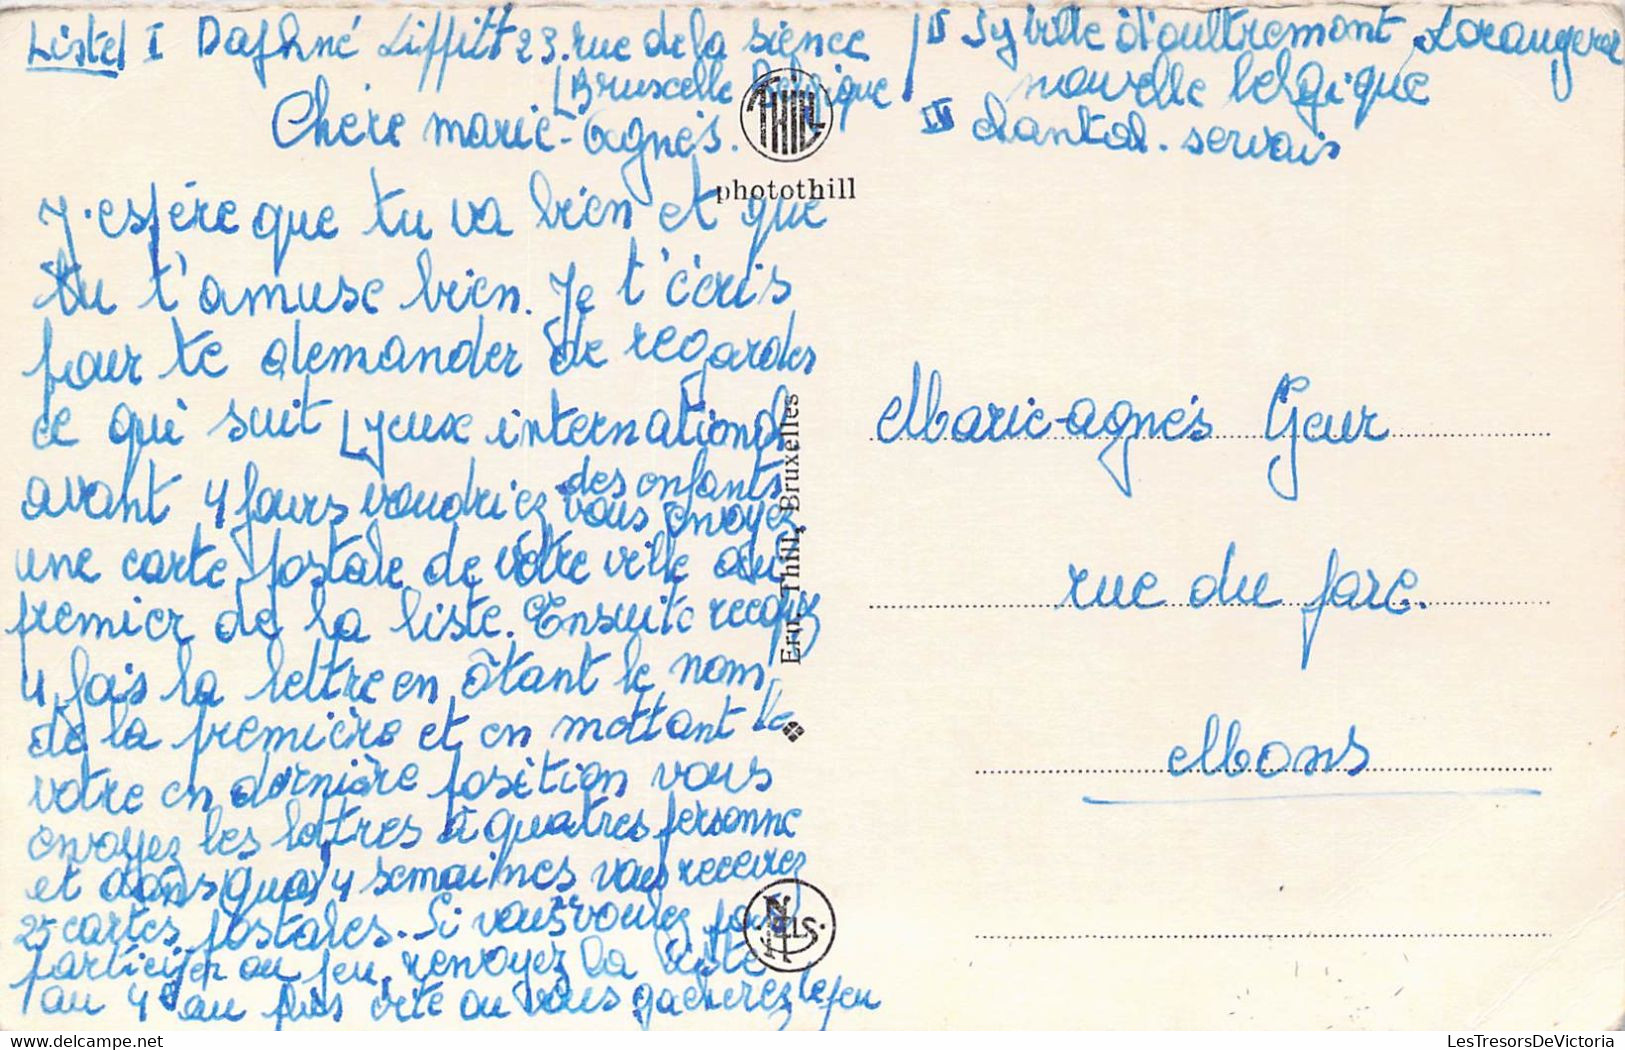 Liste I Daphné Liffitt 23. rue de la sience
Bruxcelle Belgique
II Sybille d'oultremont Lorangerez
nouvelle belgique
III chantal. servais
Chère marie-Agnés.
J'espére que tu va bien et que
tu t'amuse bien. Je t'écris
pour te demander de regardes
ce qui suit Jeux international
des enfants
avant 4 jours voudriez vous envoyez
une carte postale de votre ville au
premier de la liste. Ensuite recopiez
4 fois la lettre en ôtant le nom
de la premiére et en mettant le
votre en dernière position vous
envoyez les lettres à quatres personne
et dans 4 semaines vous recevrez
25 cartes postales. Si vous voulez pas
participer au jeu, renvoyez la liste
au 4e au plus vite ou vous gacherez le jeu
THILL
photothill
Ern. Thill, Bruxelles
NELS
Marie-agnés Geur
rue du parc.
Mons
LesTresorsDeVictoria